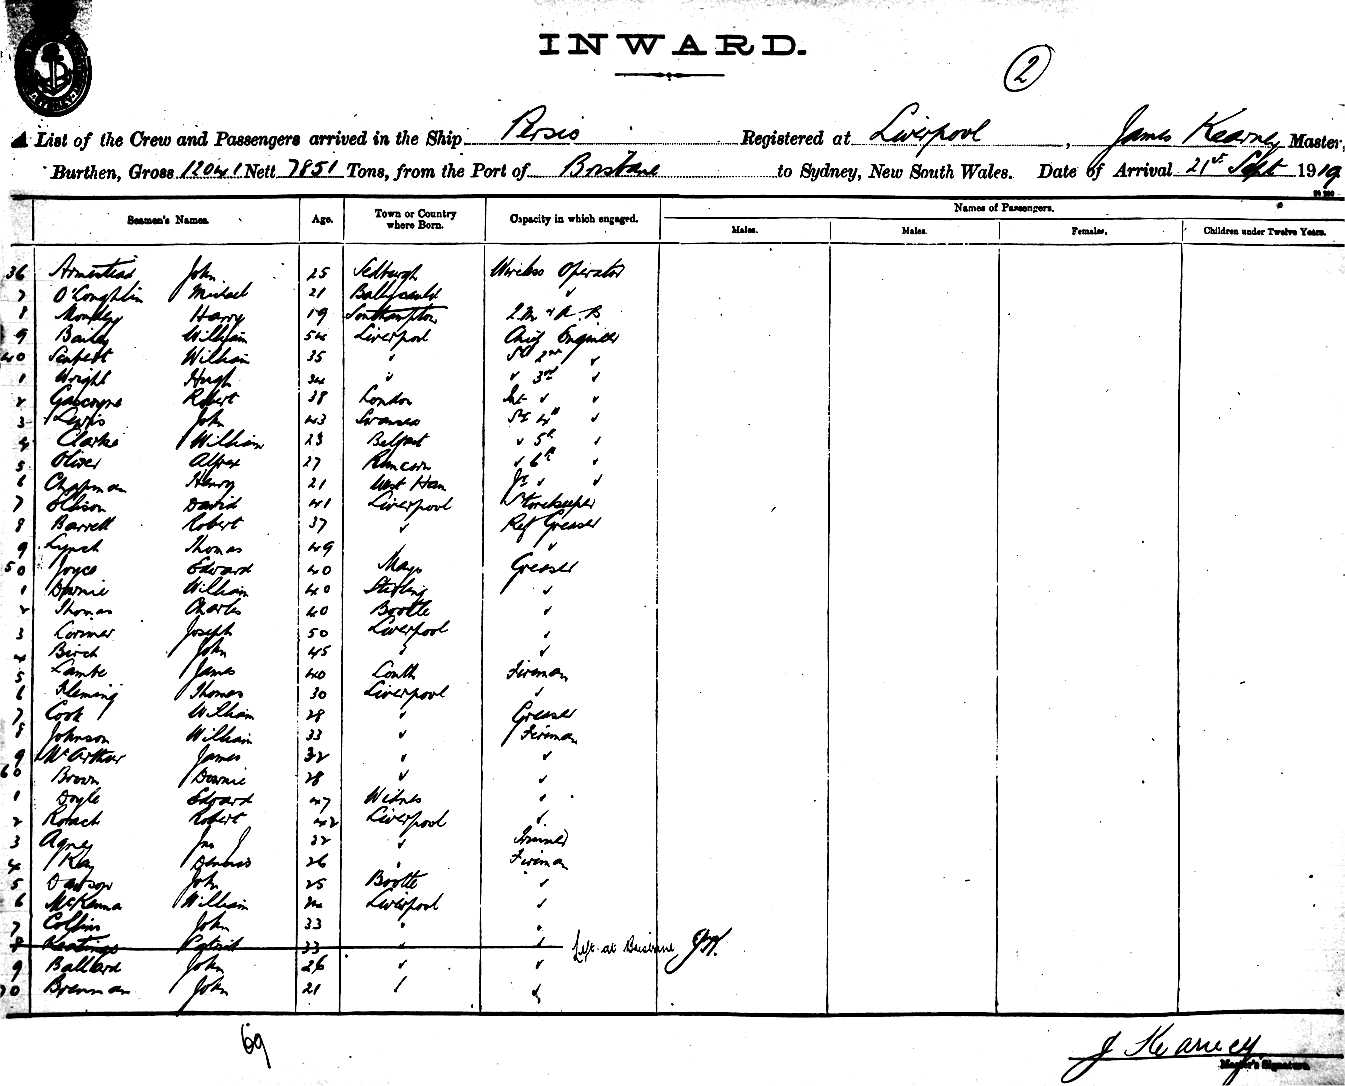 INWARD.
2
List of the Crew and Passengers arrived in the Ship Persic Registered at Liverpool, James Kearney Master,
Burthen, Gross 12041 Nett 7851 Tons, from the Port of Brisbane to Sydney, New South Wales. Date of Arrival 21st Sept 1919
Seamen's Names. Age. Town or Country where Born. Capacity in which engaged. Names of Passengers.
Males. Males. Females. Children under Twelve Years.
36 Armistead John 25 Wireless Operator
7 O'Loughlin Michael 21 "
8 Harry 19 Southampton
9 Bailey William 54 Liverpool Chief Engineer
40 William 35 " 2nd "
1 Wright Hugh 34 " " 3rd "
2 Gascoyne Robert 38 London Int " "
3 Lewis John 43 Swansea 4th "
4 Clarke William 23 Belfast " 5th "
5 Oliver 27 Runcorn " 6th "
6 Chapman Henry 21 West Ham Jr " "
7 David 41 Liverpool Storekeeper
8 Barrett Robert 37 " Ref Greaser
9 Lynch Thomas 49 "
50 Joyce Edward 40 Mayo Greaser
1 Downie William 40 Stirling "
2 Thomas Charles 40 Bootle "
3 Lorimer Joseph 50 Liverpool "
4 Birch John 45 " "
5 Lambe James 40 Louth Fireman
6 Fleming Thomas 30 Liverpool "
7 Cook William 28 " Greaser
8 Johnson William 33 " Fireman
9 McArthur James 32 " "
60 Brown Downie 28 " "
1 Doyle Edward 47 Widnes "
2 Roach Robert 42 Liverpool "
3 Jas J 32 " Trimmer
4 Kay Dennis 26 " Fireman
5 Dawson John 25 Bootle "
6 McKenna William Liverpool "
7 Collins John 33 " "
8 Keatings Patrick 33 " " Left at Brisbane JK.
9 Ballard John 26 " "
70 Brennan John 21 " "
69
J Kearney
Master's Signature.